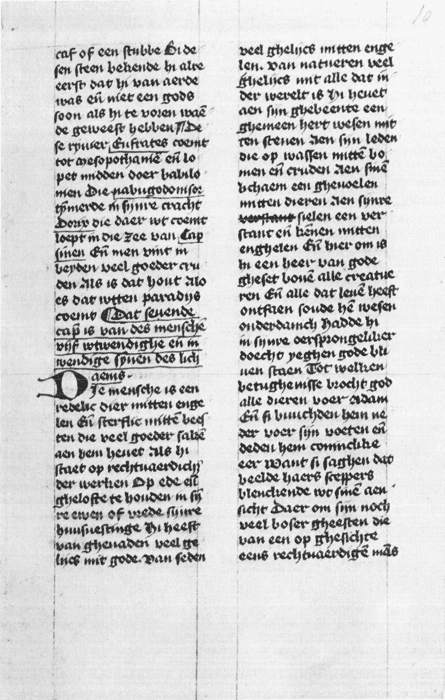 10
caf of een stubbe Bi de
sen steen bekende hi alre
eerst dat hi van aerde
was eñ niet een gods
soon als hi te voren waē
de geweest hebben De
se ryuier Eufrates coemt
tot mesopothamē eñ lo
pet midden doer babilo
men Die nabugodonosor
in sijnre cracht
die daer wt coemt
loept in die zee van Cap
Eñ men vint in
beyden veel goeder cru
den Als is dat hout Alo
es dat wtten paradijs
coemt Dat seuende
cap̄ is van des mensche
vijf wtwendighe eñ in
wendige synen des lich
aems.
Die mensche is een
redelic dier mitten enge
len Eñ sterflic mittē bees
ten die veel goeder sakē
aen hem heuet Als hi
staet op rechtuaerdich
der werken Op ede eñ
ghelofte te houden in sij
re ewen of vrede sijnre
huusuestinge Hi heeft
van ghenaden veel ge
lijcs mit gode. Van seden
veel ghelijcs mitten enge
len. van natueren veel
ghelijcs mit alle dat in
der werelt is Hi heuet
aen sijn ghebeente een
ghemeen hert wesen mit
ten stenen Aen sijn leden
die op wassen mittē bo
men eñ cruden Aen sinē
lichaem een gheuoelen
mitten dieren Aen sijnre
verstant sielen een ver
stant eñ kēnen mitten
enghelen Eñ hier om is
hi een heer van gode
gheset bouē alle creatue
ren Eñ alle dat leuē heeft
ontfaen soude hē wesen
onderdanich hadde hi
in sijnre oersprongeliker
doecht yeghen gode bli
uen staen Tot welken
betughenisse brocht god
alle dieren voer Adam
Eñ si buuchden hem ne
der voer sijn voeten eñ
deden hem coninclike
eer Want si saghen dat
beelde haers sceppers
blenckende wt sinē aen
sicht Daer om sijn noch
veel boser gheesten die
van een op ghesichte
eens rechtuaerdigē mās